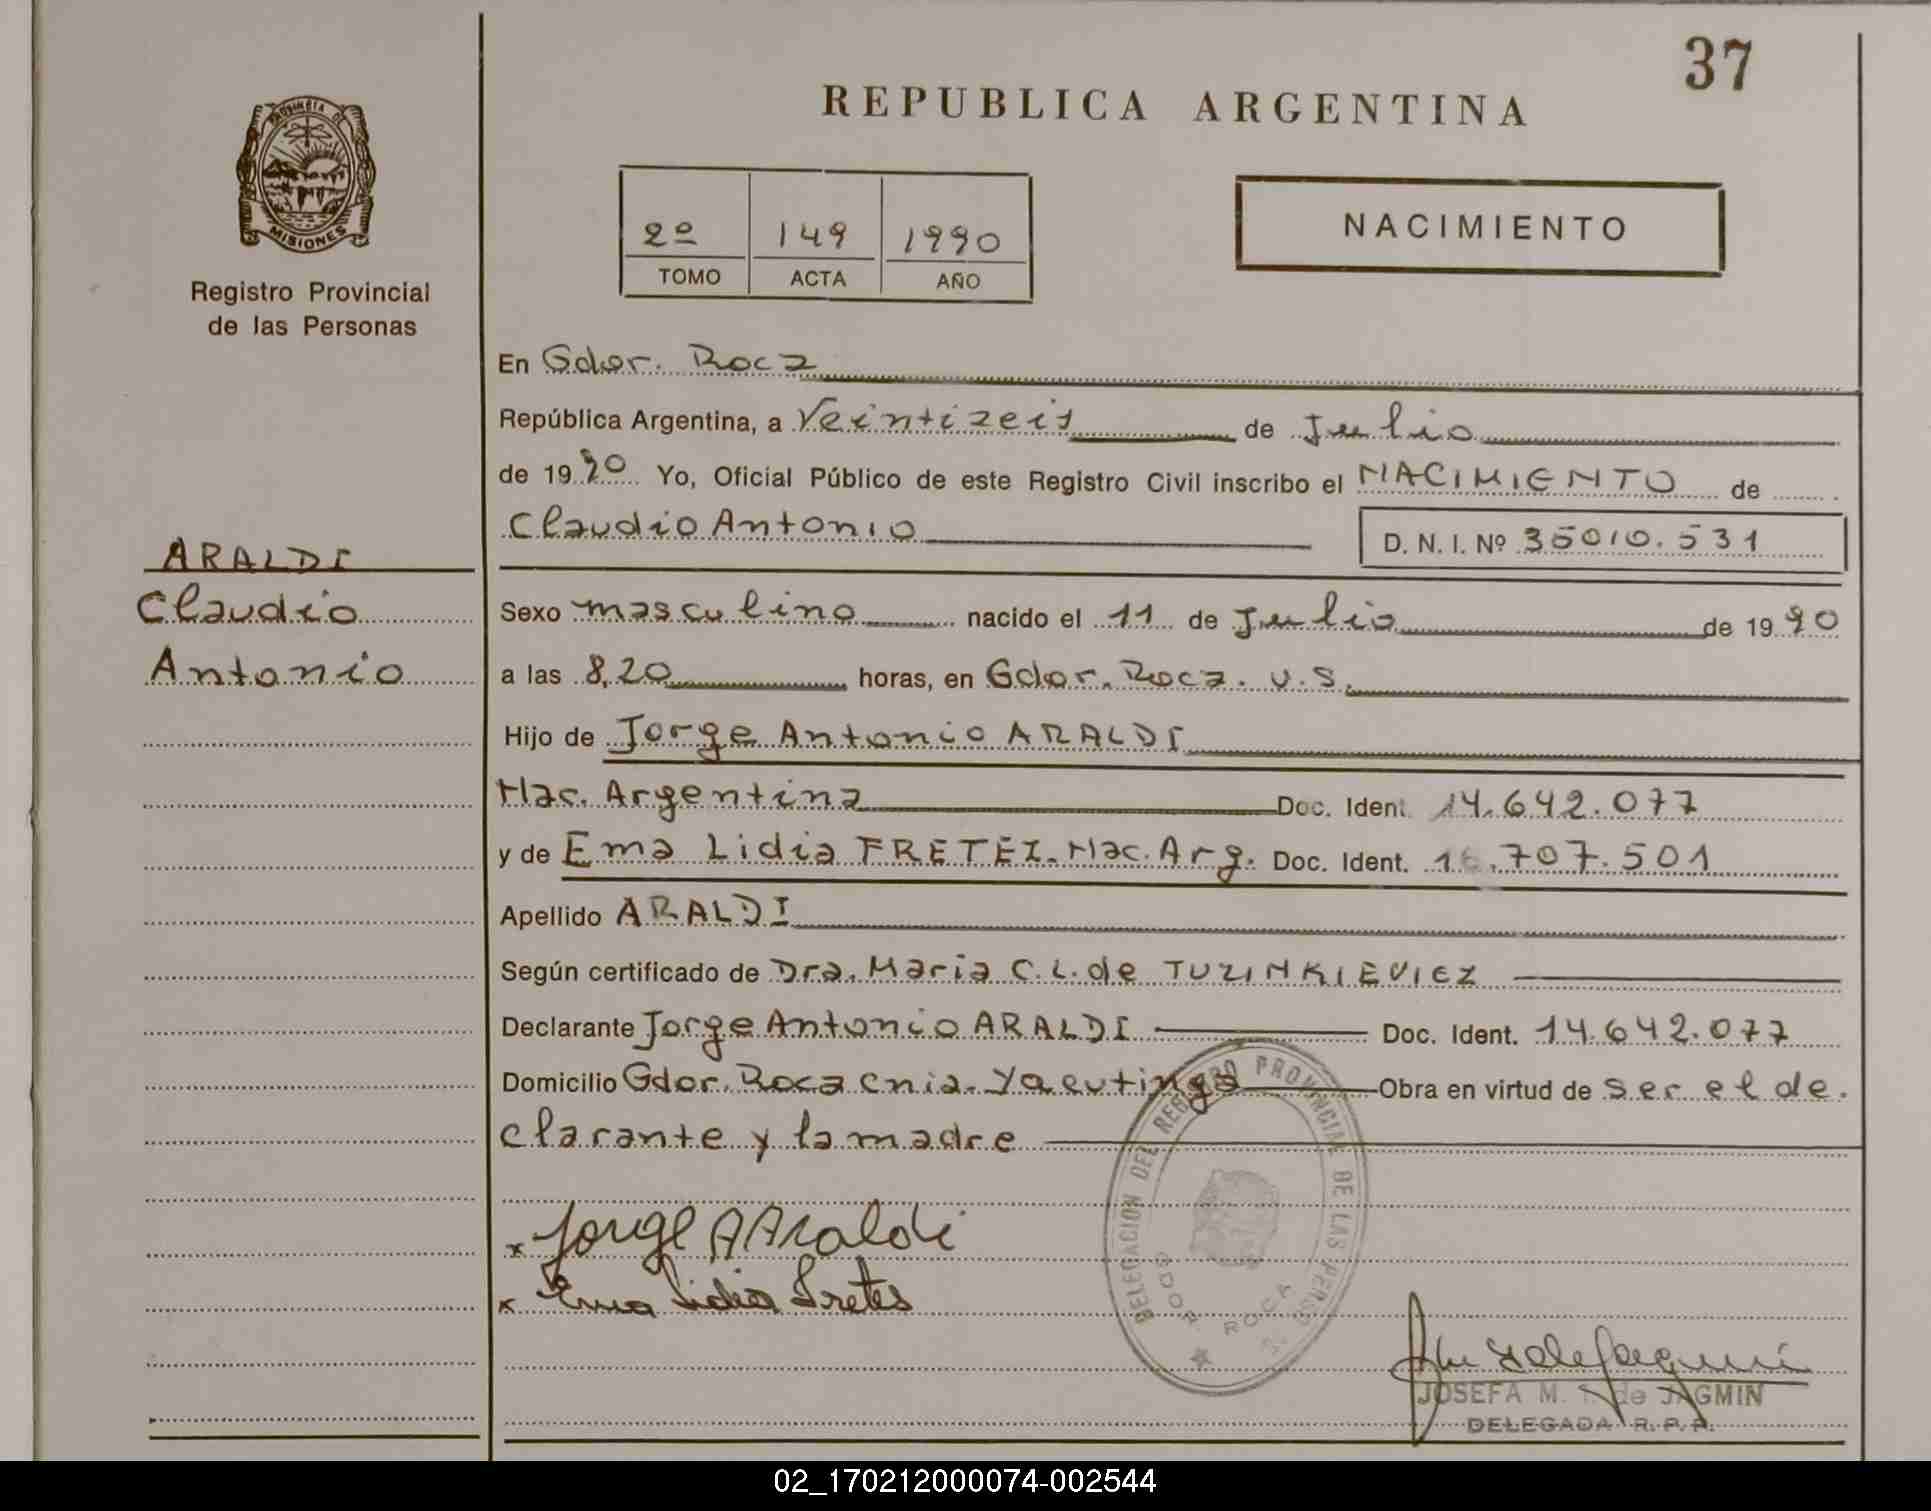 37
REPUBLICA ARGENTINA
PROVINCIA DE
MISIONES
Registro Provincial
de las Personas
2º 149 1990
TOMO ACTA AÑO
NACIMIENTO
En Gdor. Roca
República Argentina, a Veintizeis de Julio
de 1990 Yo, Oficial Público de este Registro Civil inscribo el NACIMIENTO de
Claudio Antonio D. N. I. Nº 35010.531
ARALDI
Claudio
Antonio
Sexo masculino nacido el 11 de Julio de 1990
a las 8,20 horas, en Gdor. Roca. U.S.
Hijo de Jorge Antonio ARALDI
Nac. Argentina Doc. Ident. 14.642.077
y de Ema Lidia FRETEZ. Nac. Arg. Doc. Ident. 16.707.501
Apellido ARALDI
Según certificado de Dra. Maria C. L. de TUZINKIEVIEZ
Declarante Jorge Antonio ARALDI Doc. Ident. 14.642.077
Domicilio Gdor. Roca Cnia. Yacutinga Obra en virtud de ser el de.
clarante y la madre
DELEGACION DEL REGISTRO PROVINCIAL DE LAS PERSONAS
GDOR. ROCA
x Jorge A Araldi
x Ema Lidia Fretes
JOSEFA M. de JAGMIN
DELEGADA R. P. P.
02_170212000074-002544